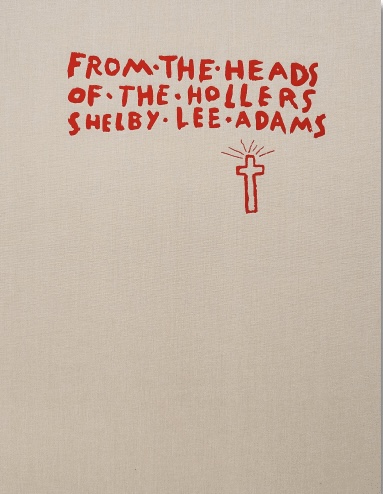 FROM·THE·HEADS
OF·THE·HOLLERS
SHELBY·LEE·ADAMS